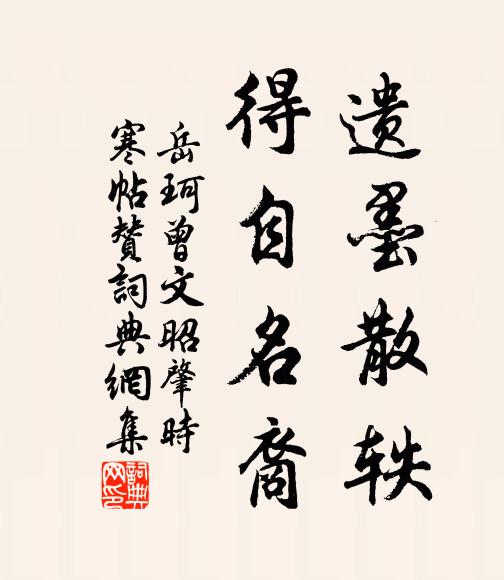 遗墨散轶
得自名裔
岳珂曾文昭肇時
寒帖赞詞典網集
詞典网印